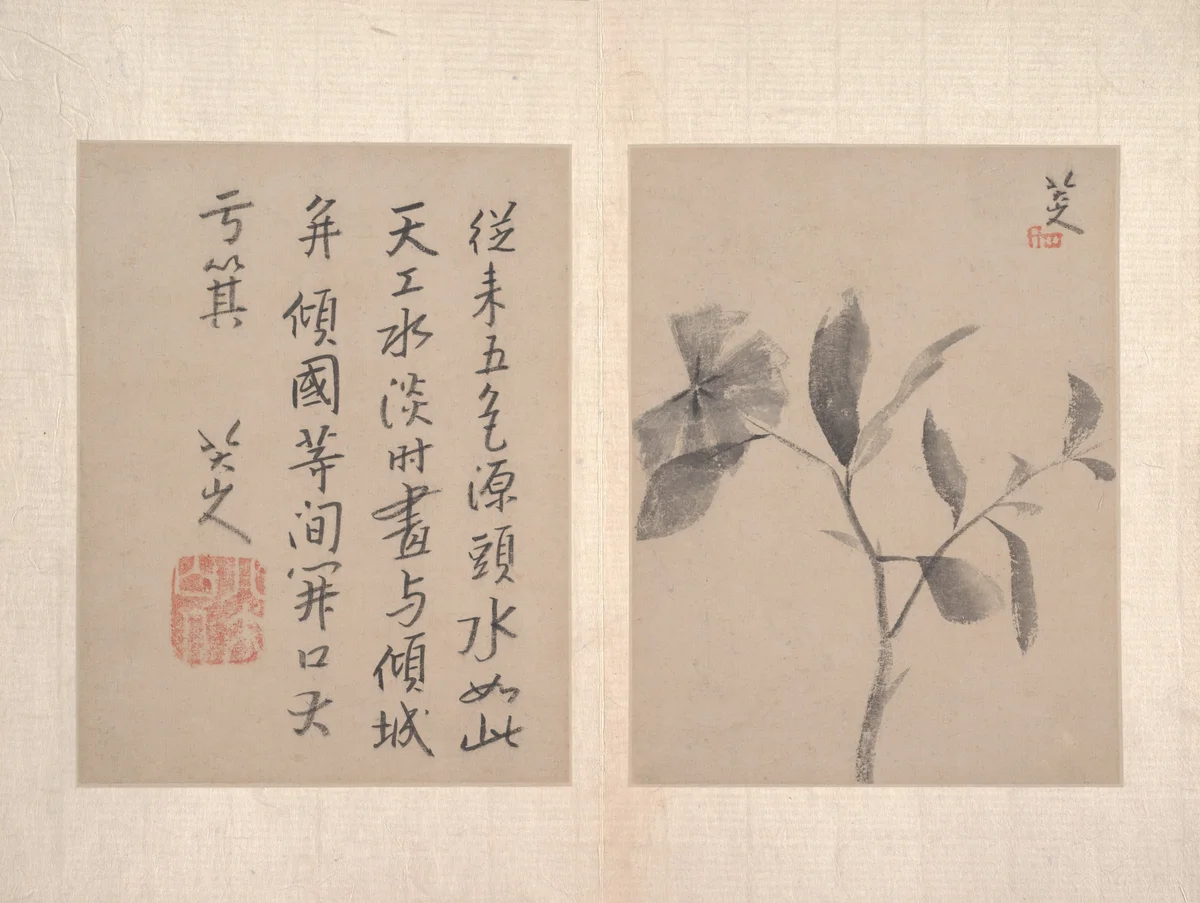 從来五色源頭水如此
天工水淡时畫与傾城
并傾國等间開口大
亏箕
八大山人
八大山人